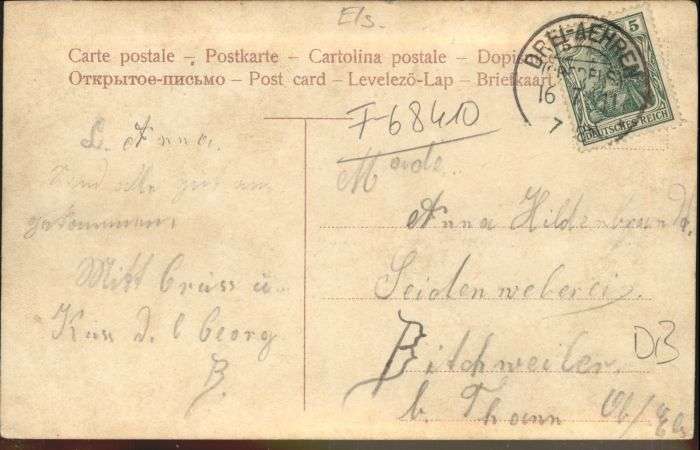 Els.
Carte postale – Postkarte – Cartolina postale – Dopis
Открытое-письмо – Post card – Levelező-Lap – Briefkaart
DREI-AEHREN
16
5
DEUTSCHES REICH
F-68410
L. Anna.
Sind alle gut an
gekommen,
Mitt Gruss u.
Kuss d. l Georg
B.
Made.
Anna Hildenbrandt.
Seidenweberei.
Bitchweiler.
b. Thann Ob/Els
DB